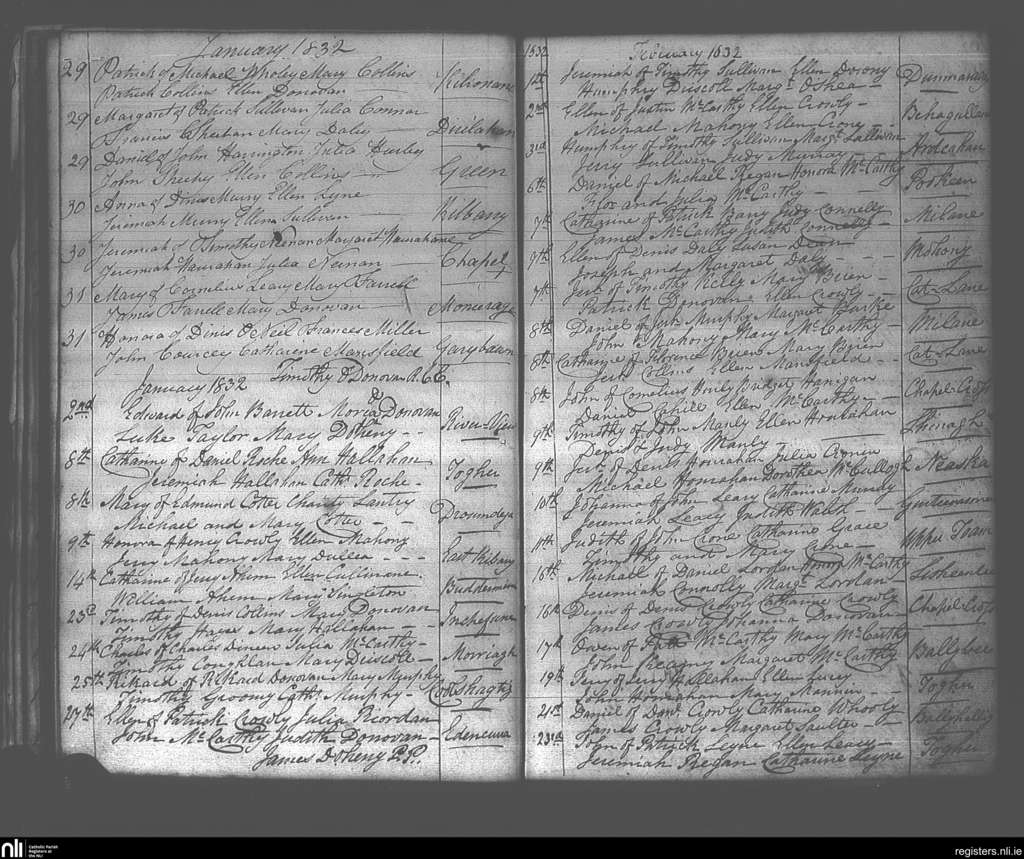 January 1832
29 Patrick of Michael Wholy Mary Collins
Patrick Collins Ellen Donovan
29 Margaret of Patrick Sullivan Julia Connor
Francis Sheehan Mary Daly
29 Daniel of John Harrington Julia Hurley Green
John Sheehy Ellen Collins
30 Anna of Denis Murry Ellen Lyne
Jeremiah Murry Ellen Sullivan Kilbany
30 Jeremiah of Timothy Neenan Margaret Hanrahan
Jeremiah Hanrahan Julia Neenan Chapel
31 Mary of Cornelius Leary Mary Farrell
James Farrell Mary Donovan
31 Honora of Dinis O Neil Frances Miller
John Courcey Catharine Mansfield Garybawn
January 1832 Timothy O Donovan R.C.C.
2nd Edward of John Barrett Moria Donovan
Luke Taylor Mary Doheny River View
8th Catharine of Daniel Roche Ann Hallahan
Jeremiah Hallahan Cath. Roche Togher
8th Mary of Edmund Cotter Lantry
Michael and Mary Cotter
9th Honora of Henry Crowly Ellen Mahony
Jerry Mahony Mary Dullea East Kilbany
14th Catharine of Jerry Ahern Ellen Cullinane
William Ahern Mary Singleton
23rd Timothy of Denis Collins Mary Donovan
Timothy Hayes Mary Hallahan
24th Charles of Charles Dineen Julia McCarthy
Timothy Conghlan Mary Driscoll
25th Rikard of Rikard Donovan Mary Murphy
Timothy Groomy Cath. Murphy
27th Ellen of Patrick Crowly Julia Riordan
John McCarthy Judith Donovan
James Doheny P.P.
1832 February 1832
1st Jeremiah of Timothy Sullivan Ellen
Humphry Driscoll Margt. OShea Dunmanway
2nd Ellen of Justin McCarthy Ellen Crowly
Michael Mahony Ellen Behagullane
3rd Humphry of Timothy Sullivan Margt. Sullivan
Jerry Sullivan Judy Murray Ardcahan
6th Daniel of Michael Regan Honora McCarthy
Flor and Julia McCarthy
7th Catharine of Patrick Barry Judy Connelly Milane
James McCarthy Judith Connelly
7th Ellen of Denis Daly Susan Dean
Joseph and Margaret Daly
7th Jerh. of Timothy Kelly Mary Brien Cat-Lane
Patrick Donovan Ellen Crowly
8th Daniel of Jerh. Murphy Margaret Burke Milane
John Mahony Mary McCarthy
8th Catharine of Florence Brien Mary Brien Cat-Lane
Jerh. Collins Ellen Mansfield
8th John of Cornelius Bridget Hanigan Chapel-Cross
Daniel Cahill Ellen McCarthy
9th Timothy of John Manly Ellen Honlahan
Denis & Judy Manly
9th Jerh. of Denis Honrahan Julia Cronin
Michael Honrahan Dorothea McCullogh Neaska
10th Johanna of John Leary Catharine Murray
Jeremiah Leary Judith Walsh
11th Judith of John Crone Catharine Grace
Timothy and Mary Crone
16th Michael of Daniel Lordan Honora McCarthy
Jeremiah Connolly Margt. Lordan
16th Denis of Denis Crowly Catharine Crowly
James Crowly Johanna Donovan Chapel-Cross
17th Owen of McCarthy Mary McCarthy
John Margaret McCarthy
19th Jerry of Jerry Hallahan Ellen Lucy
John Honrahan Mary Togher
21st Daniel of Danl. Crowly Catharine Whooly
James Crowly Margaret Ballyhellig
23rd Joan of Patrick Leyne Ellen Leacy
Jeremiah Regan Catharine Leyne Togher
nli Catholic Parish Registers at the NLI
registers.nli.ie